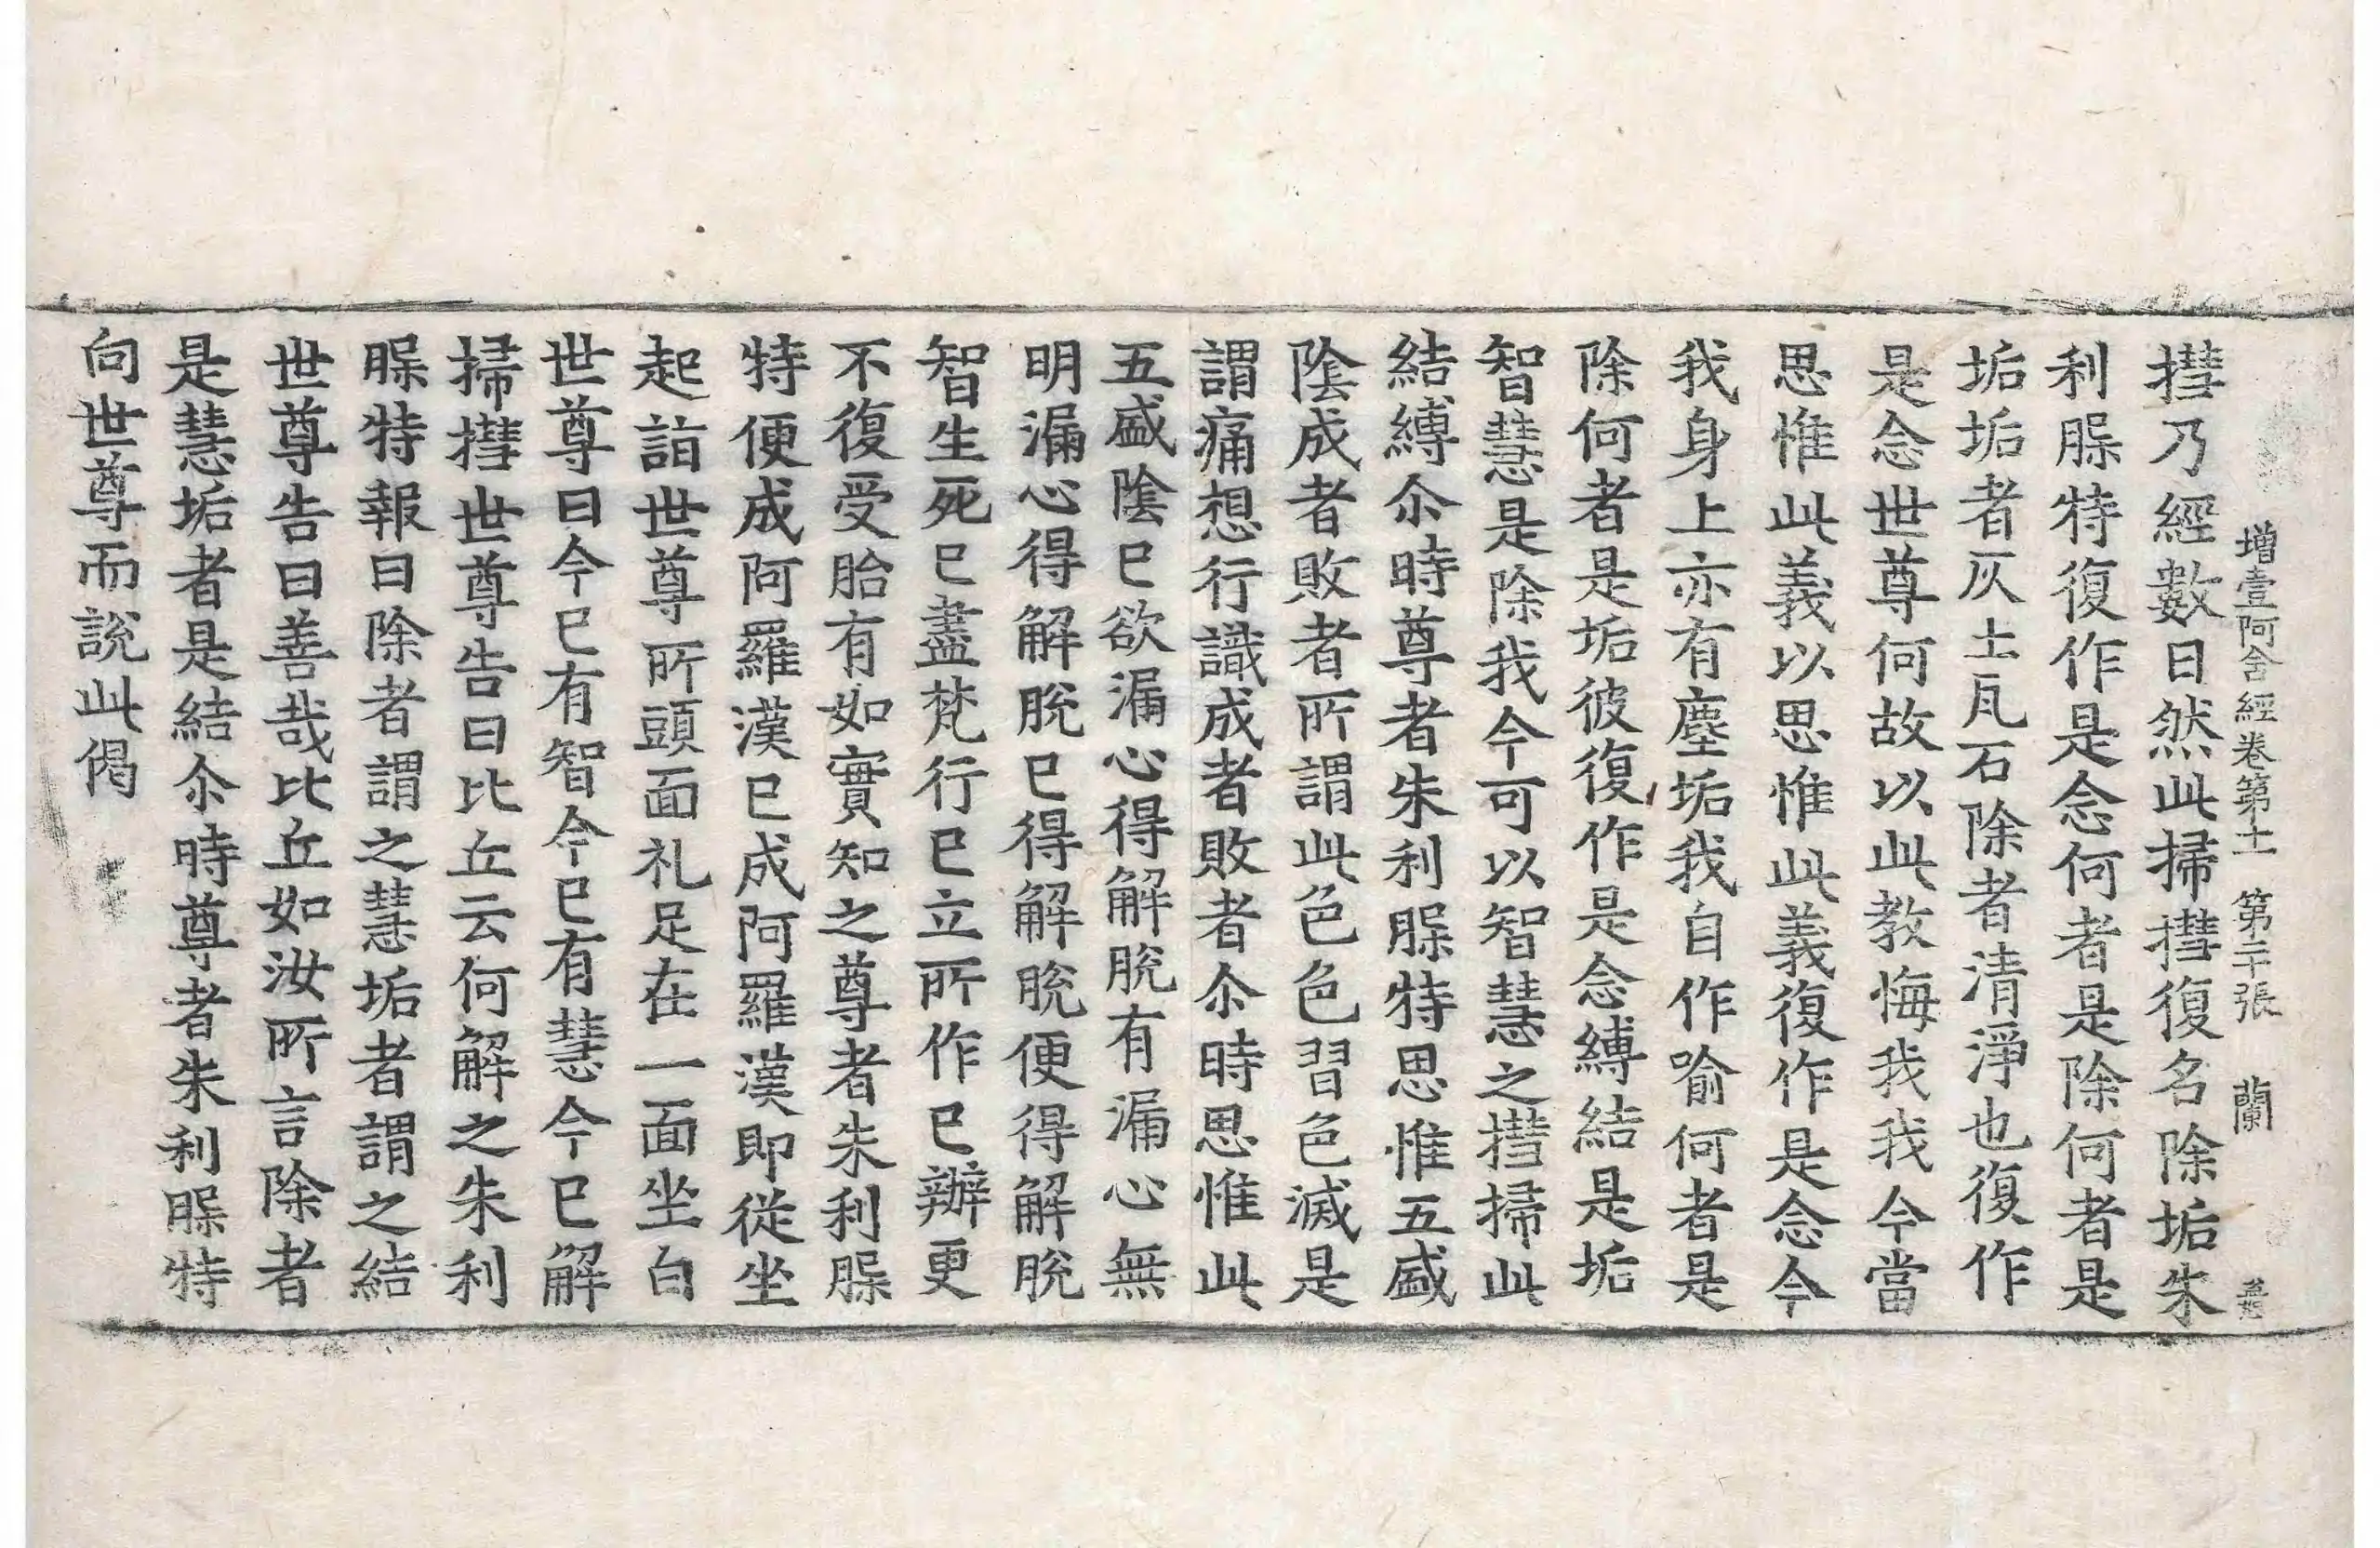 増壹阿含經卷第十一 第二十張 蘭
㨹乃經數日然此掃㨹復名除垢朱
利脵特復作是念何者是除何者是
垢垢者灰土瓦石除者清淨也復作
是念世尊何故以此教悔我我今當
思惟此義以思惟此義復作是念今
我身上亦有塵垢我自作喻何者是
除何者是垢彼復作是念縛結是垢
智慧是除我今可以智慧之㨹掃此
結縛尒時尊者朱利脵特思惟五盛
陰成者敗者所謂此色色習色滅是
謂痛想行識成者敗者尒時思惟此
五盛陰已欲漏心得解脫有漏心無
明漏心得解脫已得解脫便得解脫
智生死已盡梵行已立所作已辦更
不復受胎有如實知之尊者朱利脵
特便成阿羅漢已成阿羅漢即從坐
起詣世尊所頭面礼足在一面坐白
世尊曰今已有智今已有慧今已解
掃㨹世尊告曰比丘云何解之朱利
脵特報曰除者謂之慧垢者謂之結
世尊告曰善哉比丘如汝所言除者
是慧垢者是結尒時尊者朱利脵特
向世尊而說此偈